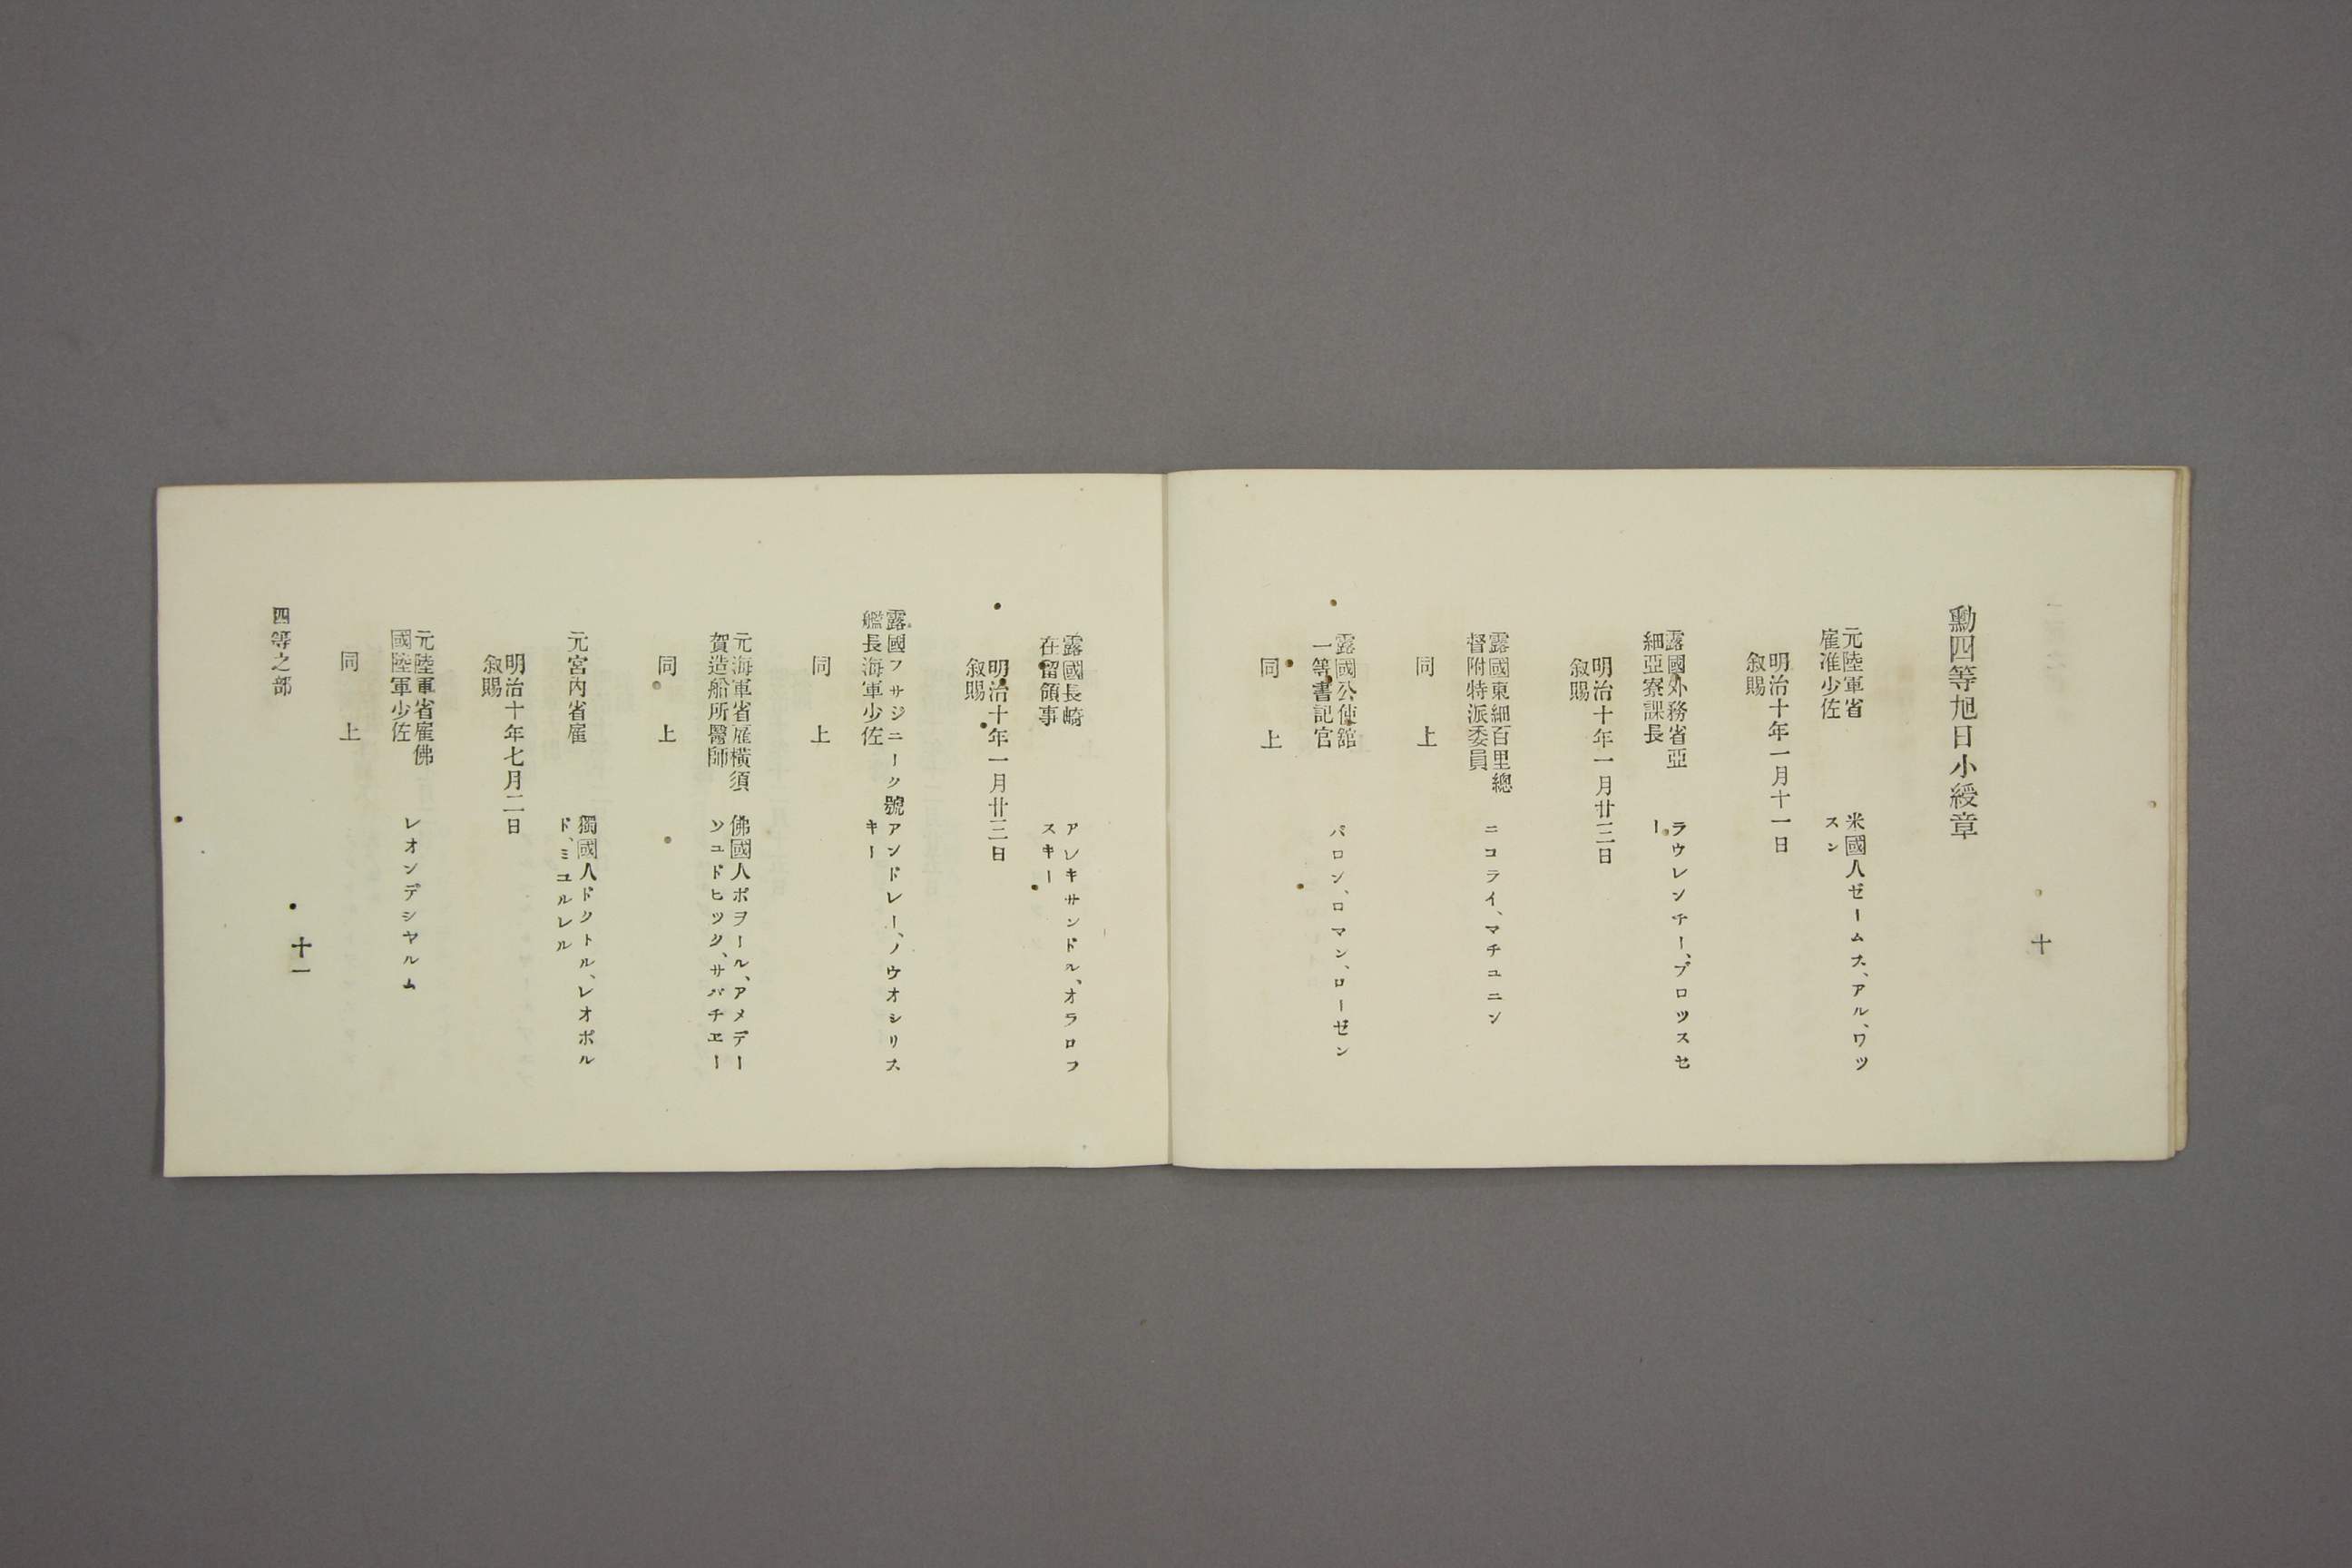 十
勳四等旭日小綬章
元陸軍省
雇准少佐
米國人ゼームス、アル、ワッ
スン
明治十年一月十一日
敘賜
露國外務省亞
細亞寮課長
ラウレンチー、ブロツスセ
ー
明治十年一月廿三日
敘賜
露國東細百里總
督附特派委員
ニコライ、マチュニン
同上
露國公使舘
一等書記官
バロン、ロマン、ローゼン
同上
露國長崎
在留領事
アレキサンドル、オラロフ
スキー
明治十年一月廿三日
敘賜
露國フサジニーク號
艦長海軍少佐
アンドレー、ノウオシリス
キー
同上
元海軍省雇橫須
賀造船所醫師
佛國人ポヲール、アメデー
ソュドヒック、サバチエー
同上
元宮內省雇
獨國人ドクトル、レオポル
ド、ミユルレル
明治十年七月二日
敘賜
元陸軍省雇佛
國陸軍少佐
レオンデシヤルム
同上
四等之部
十一